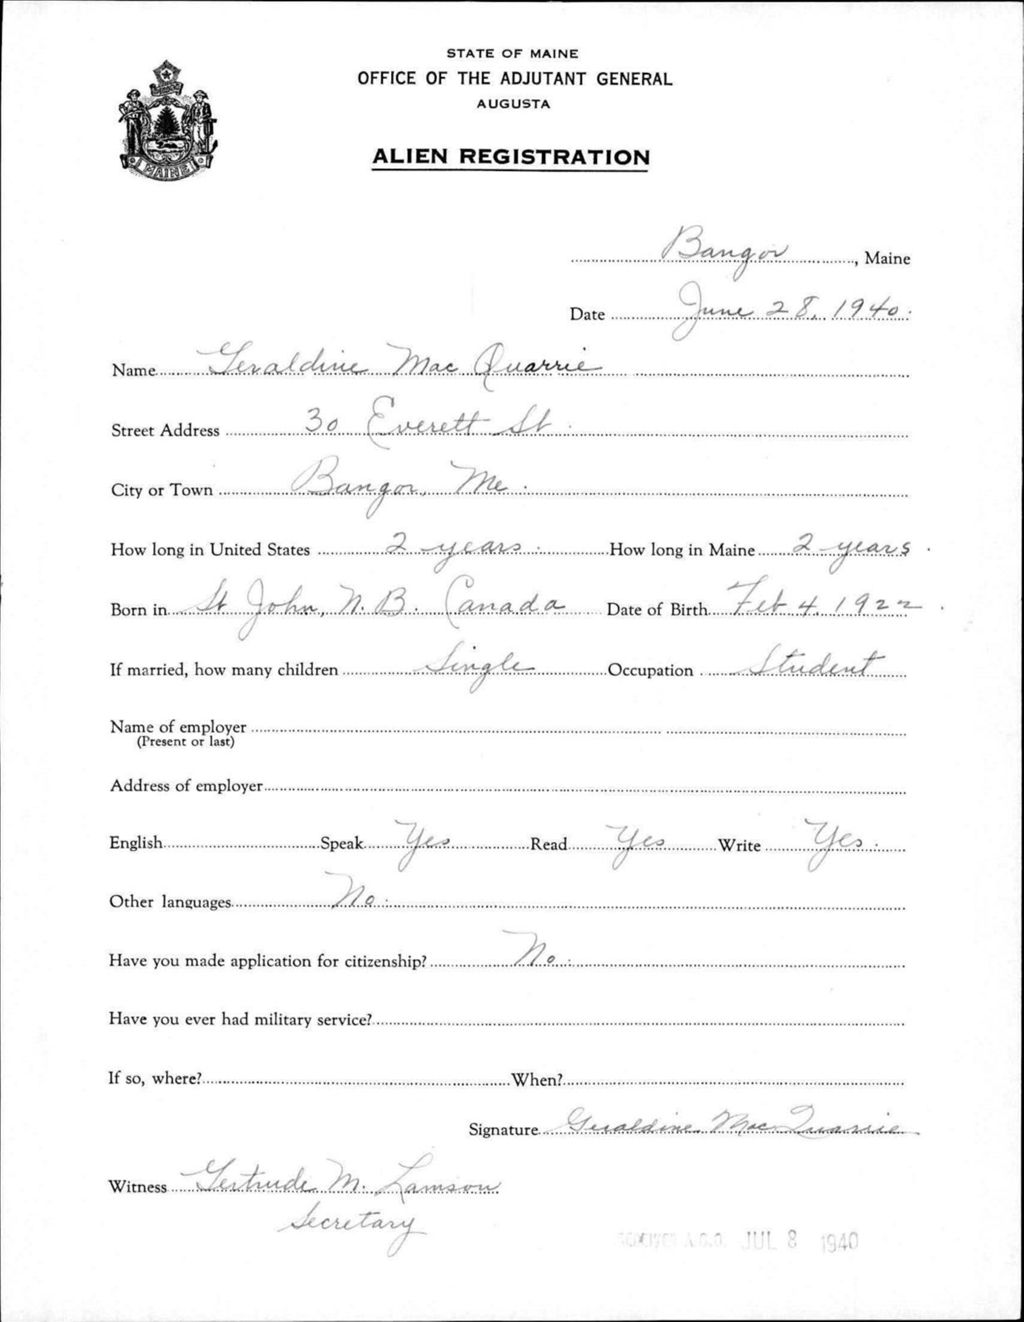 STATE OF MAINE
OFFICE OF THE ADJUTANT GENERAL
AUGUSTA
ALIEN REGISTRATION
MAINE
Bangor, Maine
Date June 28, 1940.
Name Geraldine Mac Quarrie
Street Address 30 Everett St.
City or Town Bangor, Me.
How long in United States 2 years. How long in Maine 2 years.
Born in St John, N.B. Canada Date of Birth Feb 4, 1922.
If married, how many children Single Occupation Student
Name of employer
(Present or last)
Address of employer
English Speak Yes Read Yes Write Yes.
Other languages No.
Have you made application for citizenship? No.
Have you ever had military service?
If so, where? When?
Signature Geraldine MacQuarrie
Witness Gertrude M. Lamson
Secretary
RECEIVED A.G.O. JUL 8 1940